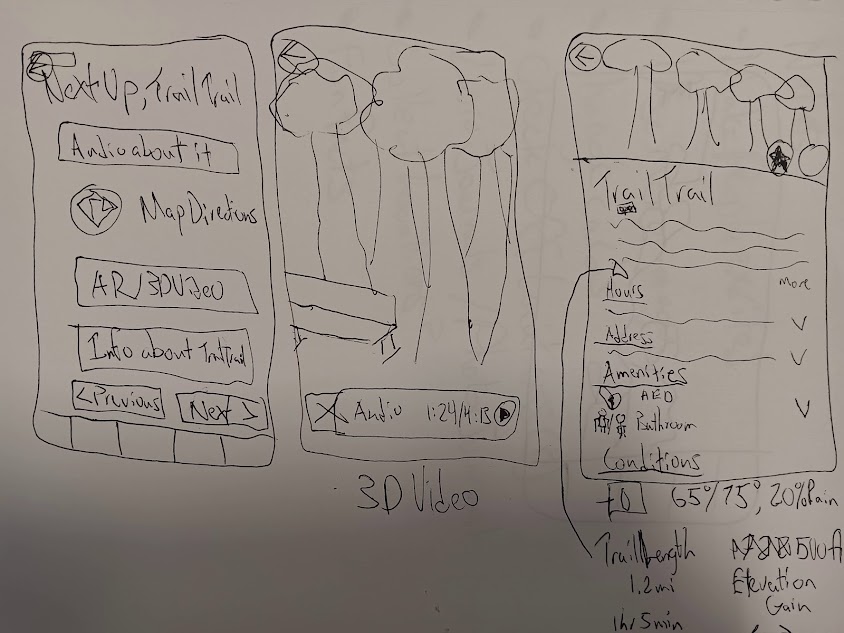 Next Up, Trail Trail
Audio about it
Map Directions
AR/3D Video
Info about Trail Trail
< Previous
Next >
X Audio 1:24/4:13
3D Video
Trail Trail
More
Hours
Address
Amenities
AED
Bathroom
Conditions
65°/75°, 20% Rain
Trail Length
1.2 mi
1hr 5min
500ft
Elevation
Gain